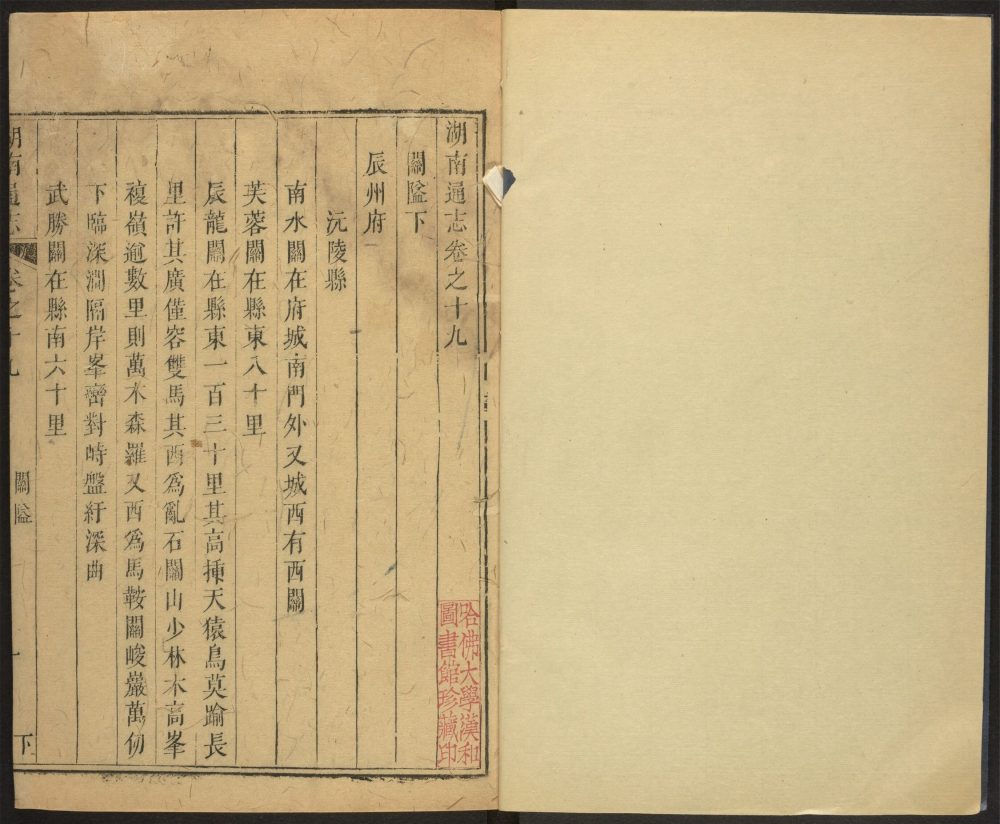 湖南通志卷之十九
關隘下
辰州府
沅陵縣
南水關在府城南門外又城西有西關
芙蓉關在縣東八十里
辰龍關在縣東一百三十里其高揷天猿鳥莫踰長
里許其廣僅容雙馬其西為亂石關山少林木高峯
複嶺逾數里則萬木森羅又西為馬鞍關峻巖萬仞
下臨深澗隔岸峯巒對峙盤紆深曲
武勝關在縣南六十里
湖南通志
卷之十九
關隘
一
下
哈佛大學漢和
圖書館珍藏印